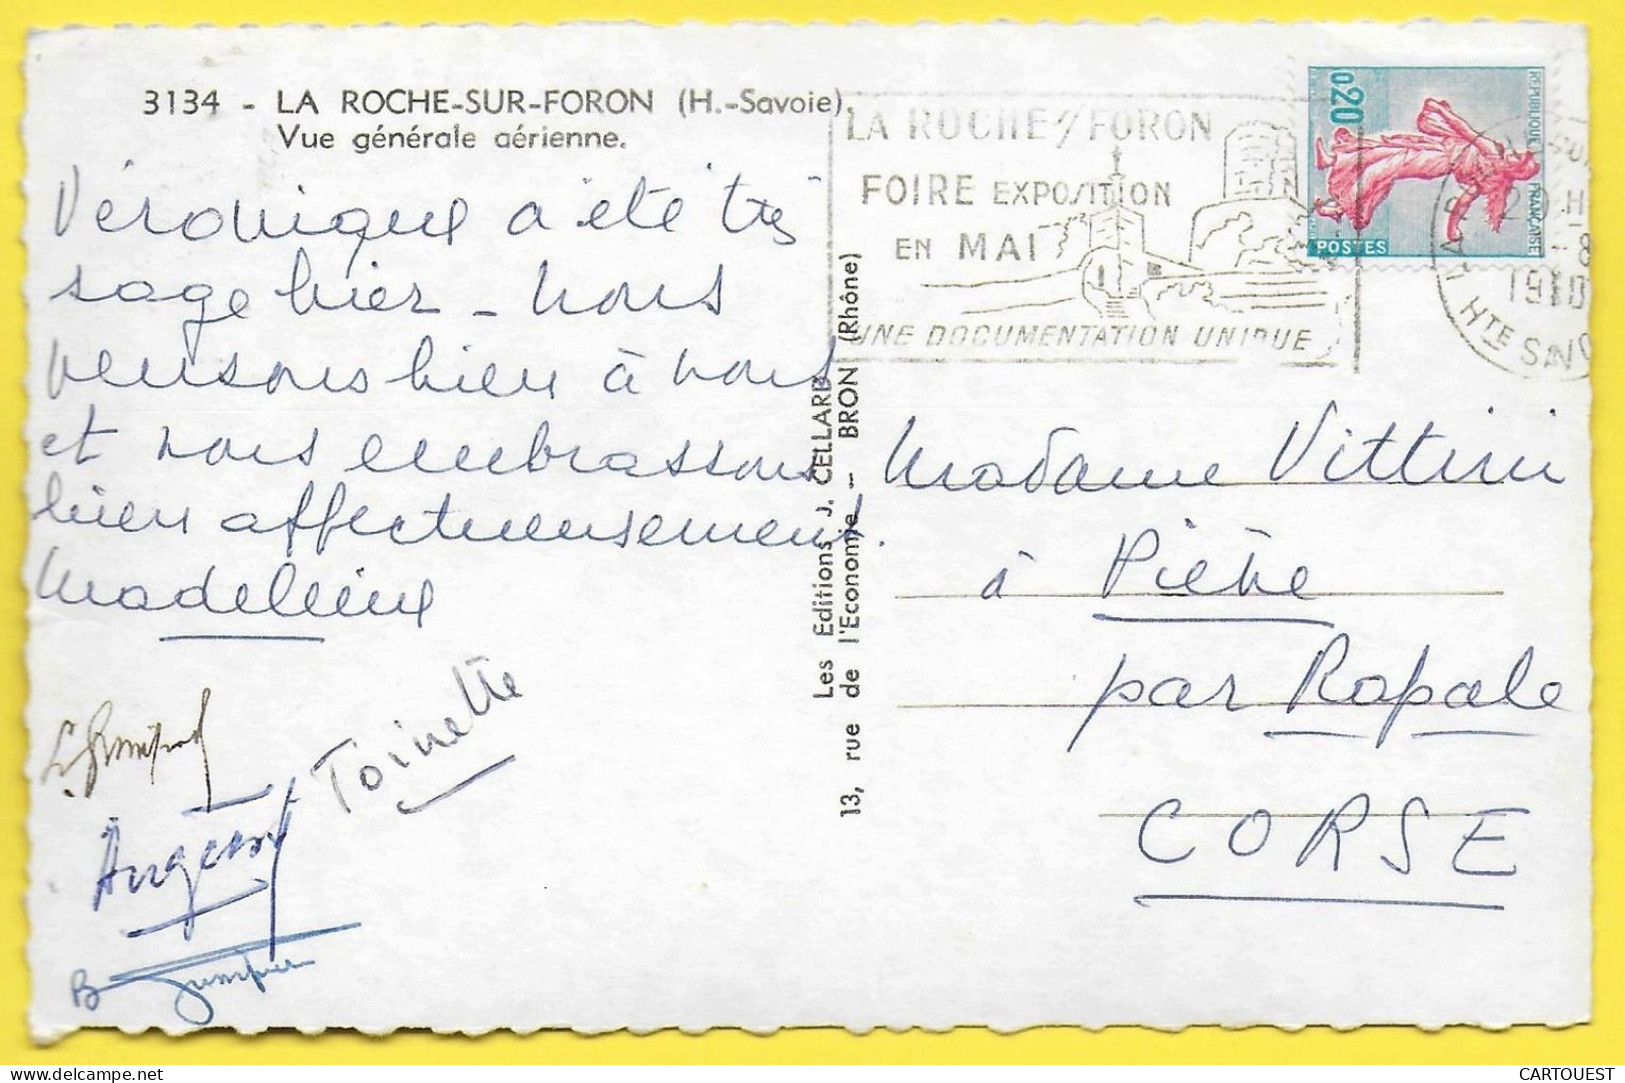 3134 - LA ROCHE-SUR-FORON (H.-Savoie).
Vue générale aérienne.
Véronique a été très
sage hier - Nous
pensons bien à vous
et vous embrassons
bien affectueusement.
Madeleine
Toinette
LA ROCHE S/ FORON
FOIRE EXPOSITION
EN MAI
UNE DOCUMENTATION UNIQUE
0,20
REPUBLIQUE FRANÇAISE
POSTES
HTE SAV
Les Editions J. CELLARD
13, rue de l'Economie - BRON (Rhône)
Madame Vittini
à Piève
par Rapale
CORSE
CARTOUEST